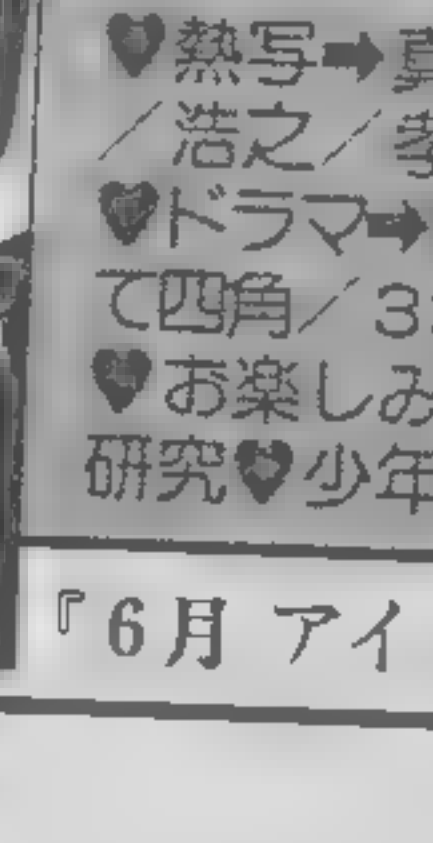 ♥熱写➡
／浩之／
♥ドラマ➡
て四角／3
♥お楽しみ
研究♥少年
『6月 アイ